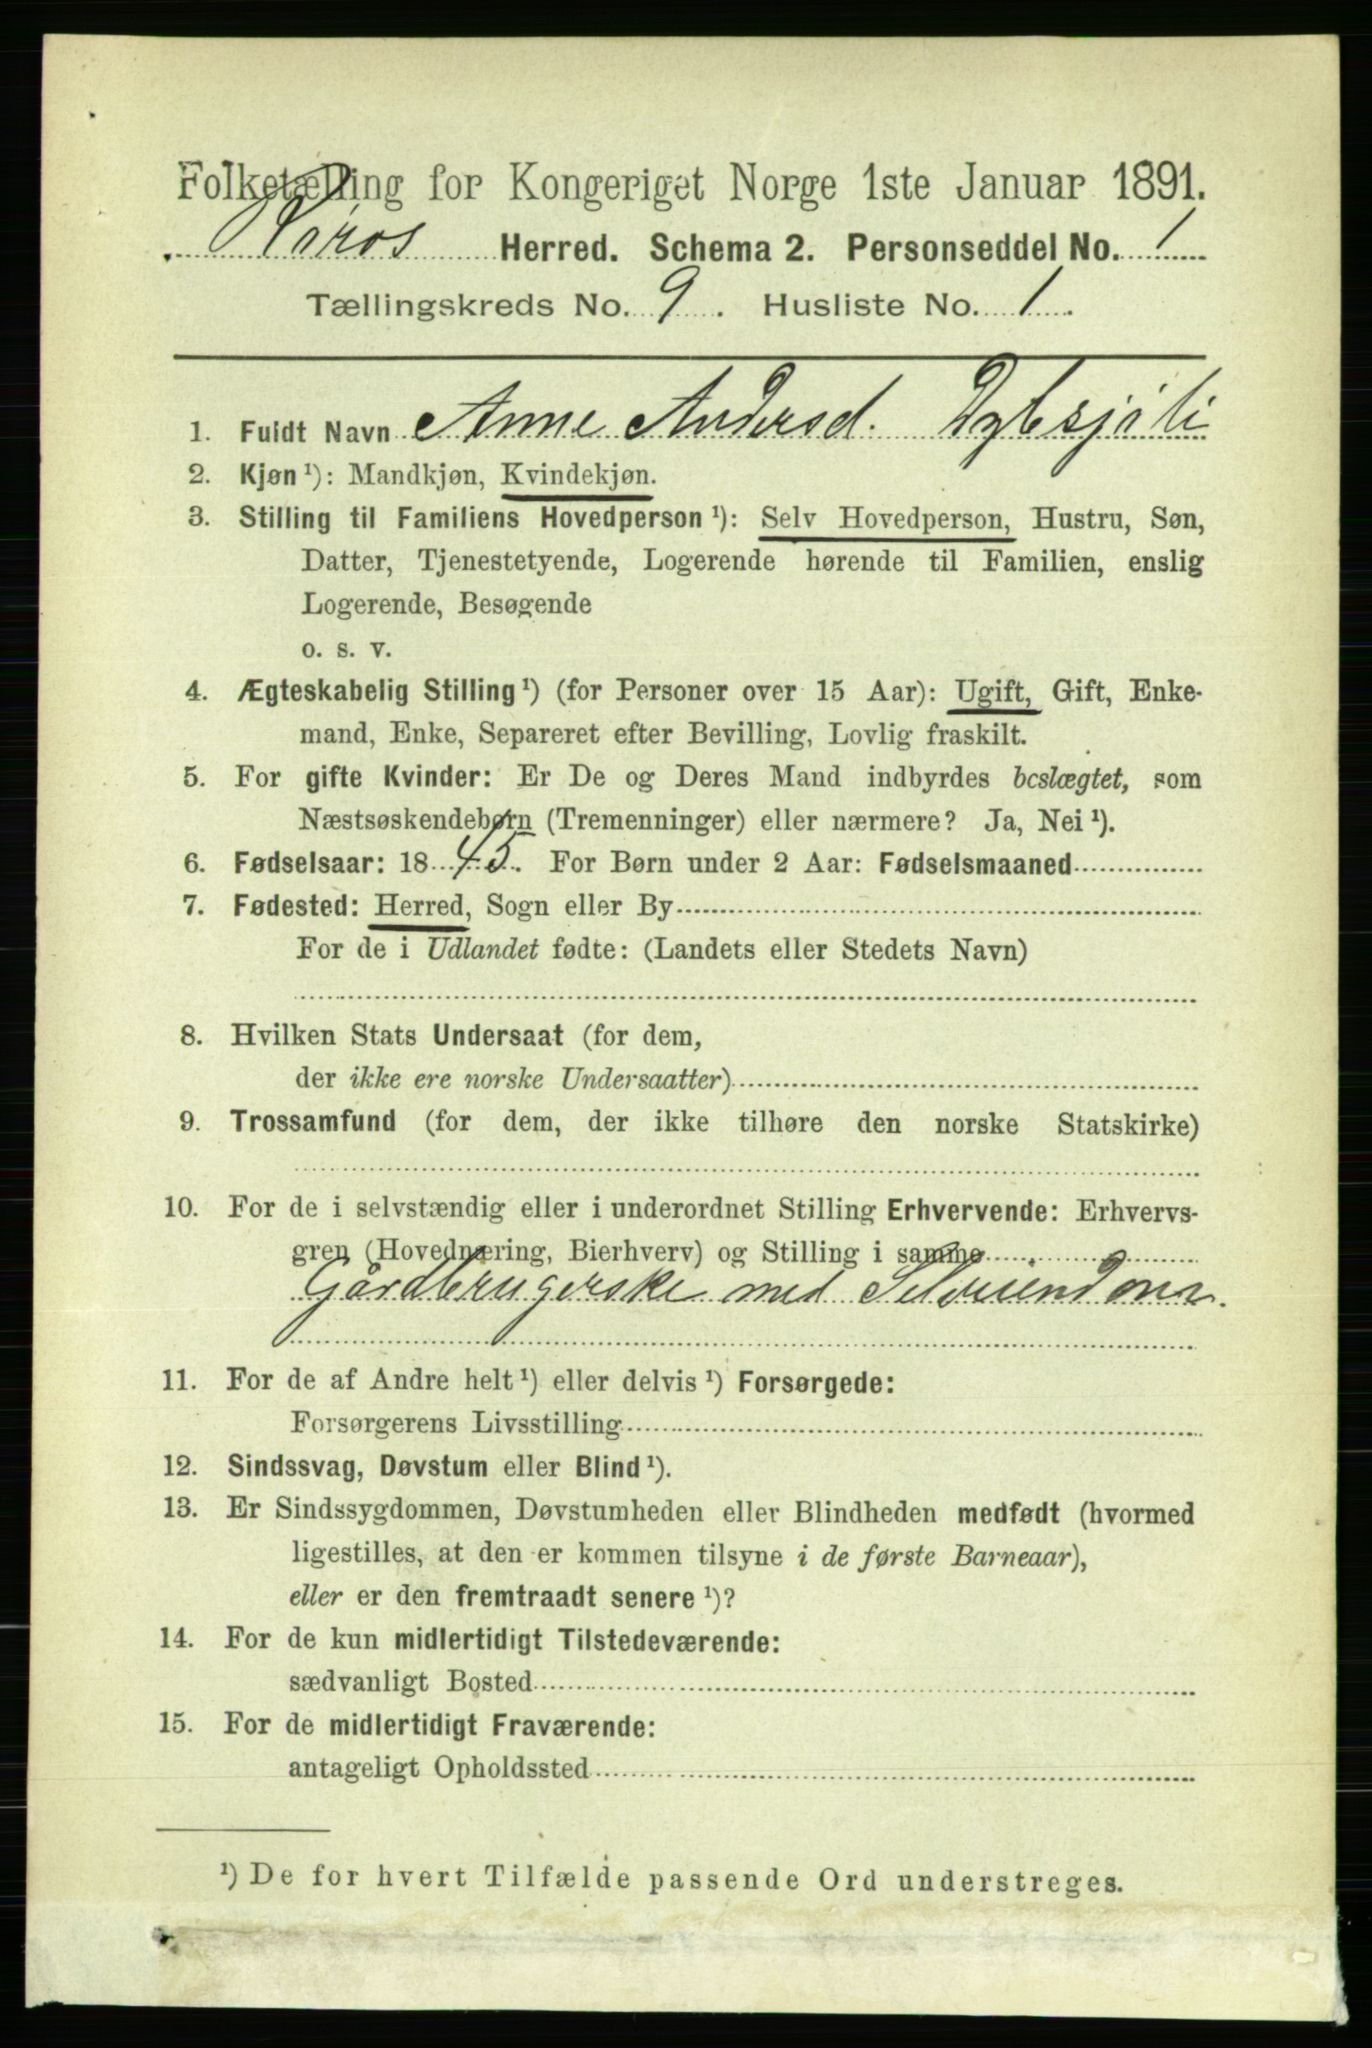 Folketælling for Kongeriget Norge 1ste Januar 1891.
Røros Herred. Schema 2. Personseddel No. 1
Tællingskreds No. 9. Husliste No. 1.
1. Fuldt Navn Anne Andersd. Dybsjøli
2. Kjøn ¹): Mandkjøn, Kvindekjøn.
3. Stilling til Familiens Hovedperson ¹): Selv Hovedperson, Hustru, Søn,
Datter, Tjenestetyende, Logerende hørende til Familien, enslig
Logerende, Besøgende
o. s. v.
4. Ægteskabelig Stilling ¹) (for Personer over 15 Aar): Ugift, Gift, Enke-
mand, Enke, Separeret efter Bevilling, Lovlig fraskilt.
5. For gifte Kvinder: Er De og Deres Mand indbyrdes beslægtet, som
Næstsøskendebørn (Tremenninger) eller nærmere? Ja, Nei ¹).
6. Fødselsaar: 1845. For Børn under 2 Aar: Fødselsmaaned
7. Fødested: Herred, Sogn eller By
For de i Udlandet fødte: (Landets eller Stedets Navn)
8. Hvilken Stats Undersaat (for dem,
der ikke ere norske Undersaatter)
9. Trossamfund (for dem, der ikke tilhøre den norske Statskirke)
10. For de i selvstændig eller i underordnet Stilling Erhvervende: Erhvervs-
gren (Hovednæring, Bierhverv) og Stilling i samme
Gårdbrugerske med Selveiendom.
11. For de af Andre helt ¹) eller delvis ¹) Forsørgede:
Forsørgerens Livsstilling
12. Sindssvag, Døvstum eller Blind ¹).
13. Er Sindssygdommen, Døvstumheden eller Blindheden medfødt (hvormed
ligestilles, at den er kommen tilsyne i de første Barneaar),
eller er den fremtraadt senere ¹)?
14. For de kun midlertidigt Tilstedeværende:
sædvanligt Bosted
15. For de midlertidigt Fraværende:
antageligt Opholdssted
¹) De for hvert Tilfælde passende Ord understreges.